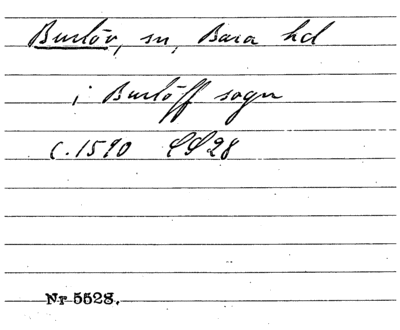 Burlöv, sn, Bara hd
i Burlöff sogn
c. 1590 LP 28
Nr 5528.